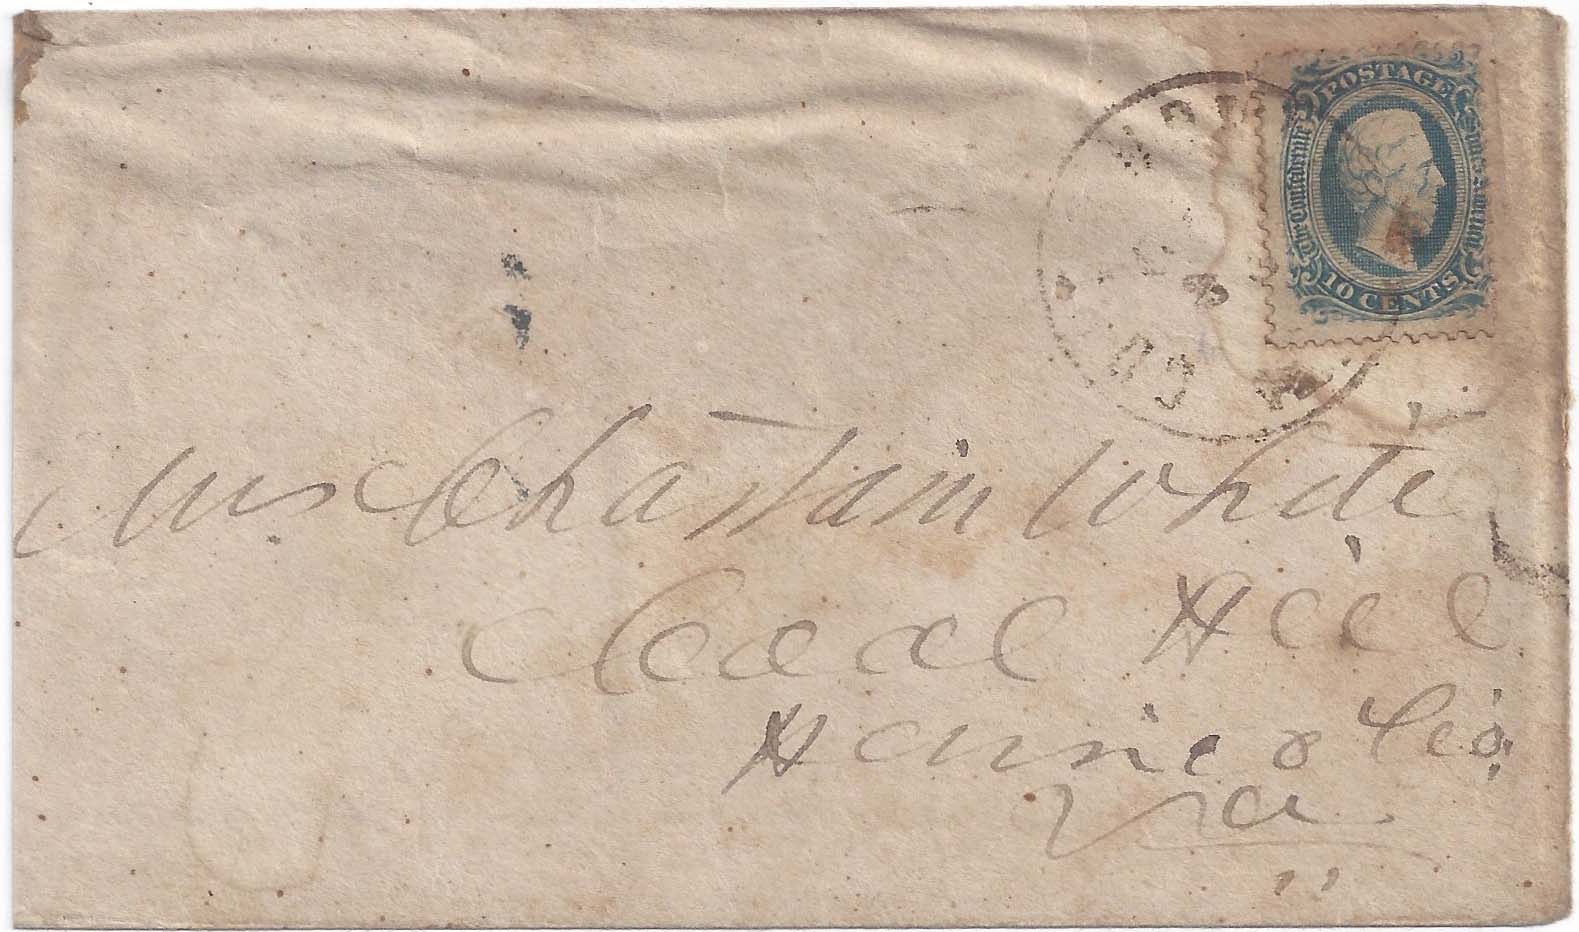 POSTAGE
The Confederate States of America
10 CENTS
Mrs Chastain White
Coal Hill
Henrico Co,
Va